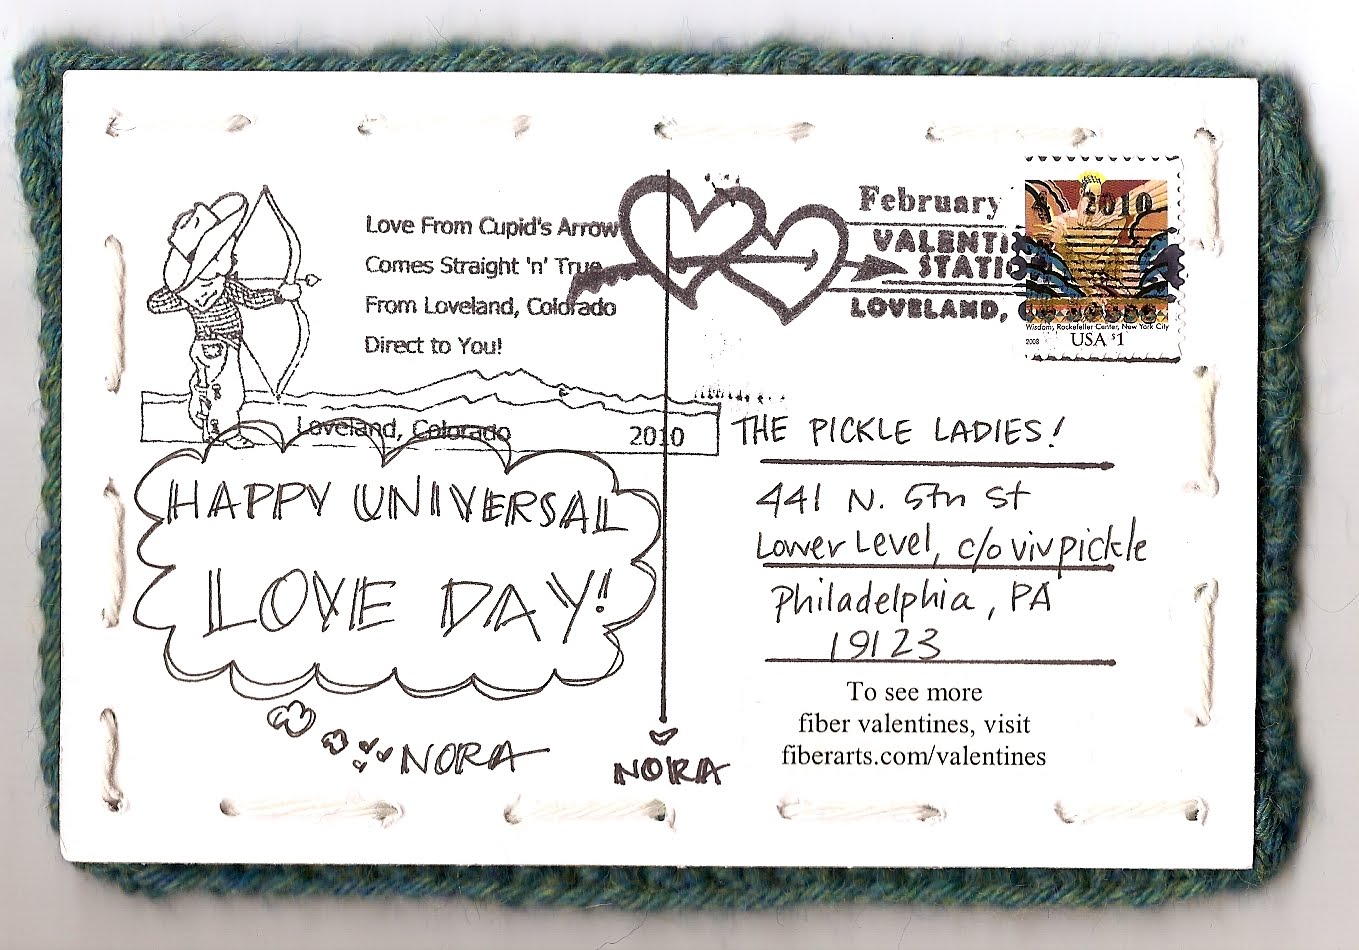 Love From Cupid's Arrow
Comes Straight 'n' True
From Loveland, Colorado
Direct to You!
Loveland, Colorado 2010
February 2010
LOVELAND,
Wisdom, Rockefeller Center, New York City
2003 USA $1
HAPPY UNIVERSAL
LOVE DAY!
NORA
NORA
THE PICKLE LADIES!
441 N. 5th St
Lower Level, c/o vivpickle
Philadelphia, PA
19123
To see more
fiber valentines, visit
fiberarts.com/valentines